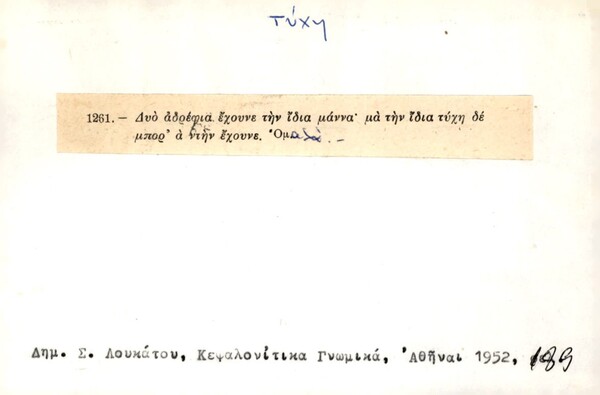 τύχη
1261. – Δυὸ ἀδρέφια ἔχουνε τὴν ἴδια μάννα· μὰ τὴν ἴδια τύχη δέ
μπορ' ἀ ντὴν ἔχουνε. Ὁμαλὰ. –
Δημ. Σ. Λουκάτου, Κεφαλονίτικα Γνωμικά, Ἀθῆναι 1952, 189